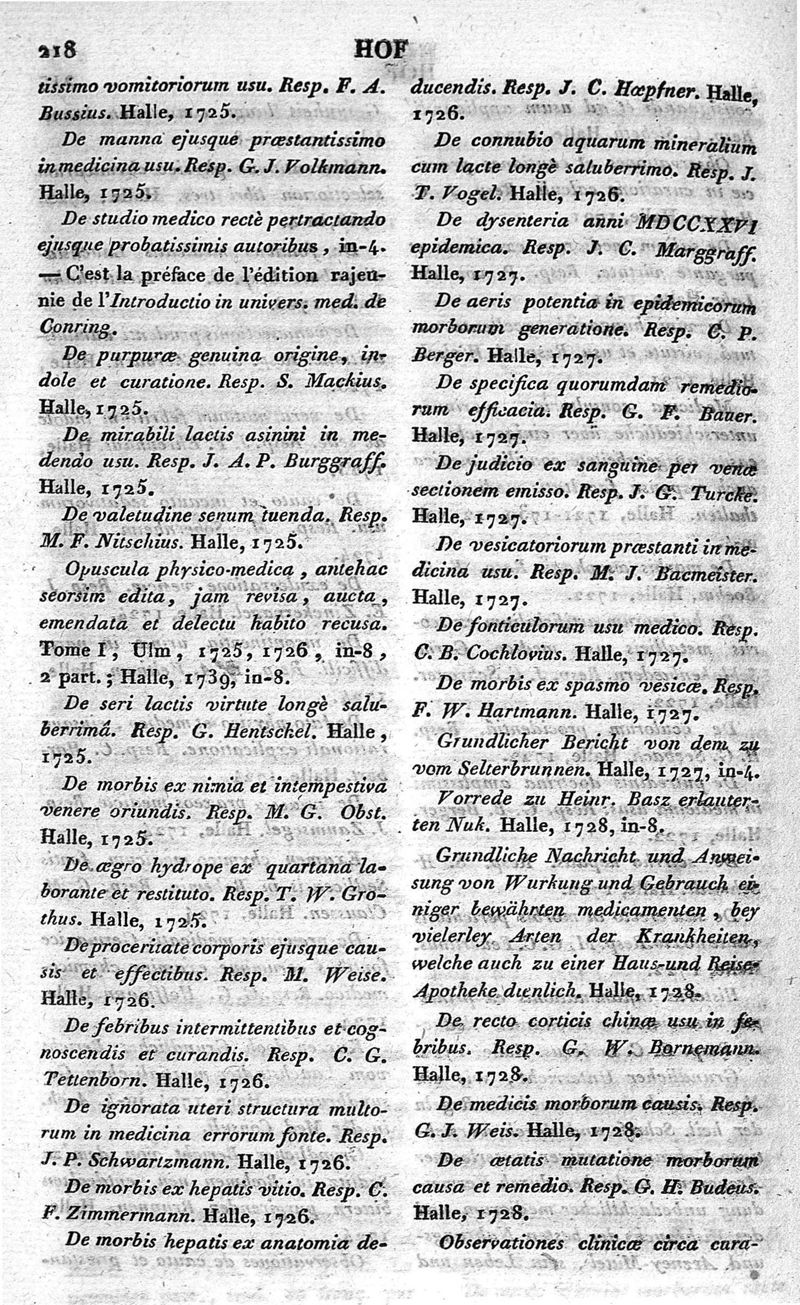 218 HOF
tissimo vomitoriorum usu. Resp. F. A.
Bussius. Halle, 1725.
De manna ejusque præstantissimo
in medicina usu. Resp. G. J. Volkmann.
Halle, 1725.
De studio medico rectè pertractando
ejusque probatissimis autoribus, in-4.
— C'est la préface de l'édition rajeu-
nie de l'Introductio in univers. med. de
Conring.
De purpuræ genuina origine, in-
dole et curatione. Resp. S. Mackius.
Halle, 1725.
De mirabili lactis asinini in me-
dendo usu. Resp. J. A. P. Burggraff.
Halle, 1725.
De valetudine senum tuenda. Resp.
M. F. Nitschius. Halle, 1725.
Opuscula physico-medica, antehac
seorsim edita, jam revisa, aucta,
emendata et delectu habito recusa.
Tome I, Ulm, 1725, 1726, in-8,
2 part.; Halle, 1739, in-8.
De seri lactis virtute longè salu-
berrimâ. Resp. G. Hentsckel. Halle,
1725.
De morbis ex nimia et intempestiva
venere oriundis. Resp. M. G. Obst.
Halle, 1725.
De ægro hydrope ex quartana la-
borante et restituto. Resp. T. W. Gro-
thus. Halle, 1725.
De proceritate corporis ejusque cau-
sis et effectibus. Resp. M. Weise.
Halle, 1726.
De febribus intermittentibus et cog-
noscendis et curandis. Resp. C. G.
Tettenborn. Halle, 1726.
De ignorata uteri structura multo-
rum in medicina errorum fonte. Resp.
J. P. Schwartzmann. Halle, 1726.
De morbis ex hepatis vitio. Resp. C.
F. Zimmermann. Halle, 1726.
De morbis hepatis ex anatomia de-
ducendis. Resp. J. C. Hœpfner. Halle,
1726.
De connubio aquarum mineralium
cum lacte longè saluberrimo. Resp. J.
T. Vogel. Halle, 1726.
De dysenteria anni MDCCXXVI
epidemica. Resp. J. C. Marggraff.
Halle, 1727.
De aeris potentia in epidemicorum
morborum generatione. Resp. C. P.
Berger. Halle, 1727.
De specifica quorumdam remedio-
rum efficacia. Resp. G. F. Bauer.
Halle, 1727.
De judicio ex sanguine per venæ
sectionem emisso. Resp. J. G. Turcke.
Halle, 1727.
De vesicatoriorum præstanti in me-
dicina usu. Resp. M. J. Bacmeister.
Halle, 1727.
De fonticulorum usu medico. Resp.
C. B. Cochlovius. Halle, 1727.
De morbis ex spasmo vesicæ. Resp.
F. W. Hartmann. Halle, 1727.
Grundlicher Bericht von dem zu
vom Selterbrunnen. Halle, 1727, in-4.
Vorrede zu Heinr. Basz erlauter-
ten Nuk. Halle, 1728, in-8.
Grundliche Nachricht und Anwei-
sung von Wurkung und Gebrauch ei-
niger bewährten medicamenten, bey
vielerley Arten der Krankheiten,
welche auch zu einer Haus-und Reise-
Apotheke dienlich. Halle, 1728.
De recto corticis chinæ usu in fe-
bribus. Resp. G. W. Bornemann.
Halle, 1728.
De medicis morborum causis. Resp.
G. J. Weis. Halle, 1728.
De ætatis mutatione morborum
causa et remedio. Resp. G. H. Budeus.
Halle, 1728.
Observationes clinicæ circa cura-